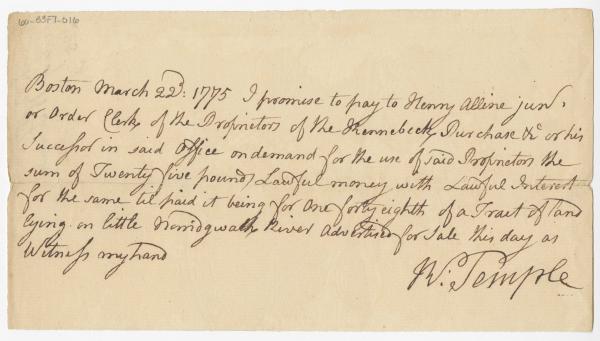 60-53F7-016
Boston March 22d: 1775 I promise to pay to Henry Alline junr.
or Order Clerk of the Proprietors of the Kennebeck Purchase &c or his
Successor in said Office on demand for the use of said Proprietors the
sum of Twenty five pounds Lawful money with Lawful Interest
for the same til paid it being for One forty eighth of a Tract of land
lying on little Norridgwalk River Advertised for Sale this day as
Witness my hand
W: Temple